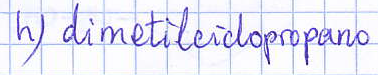 h) dimetilciclopropano